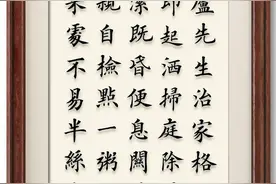 廬先生治家格
即起洒掃庭除
潔既昏便息關
親自檢點一粥
來處不易半絲